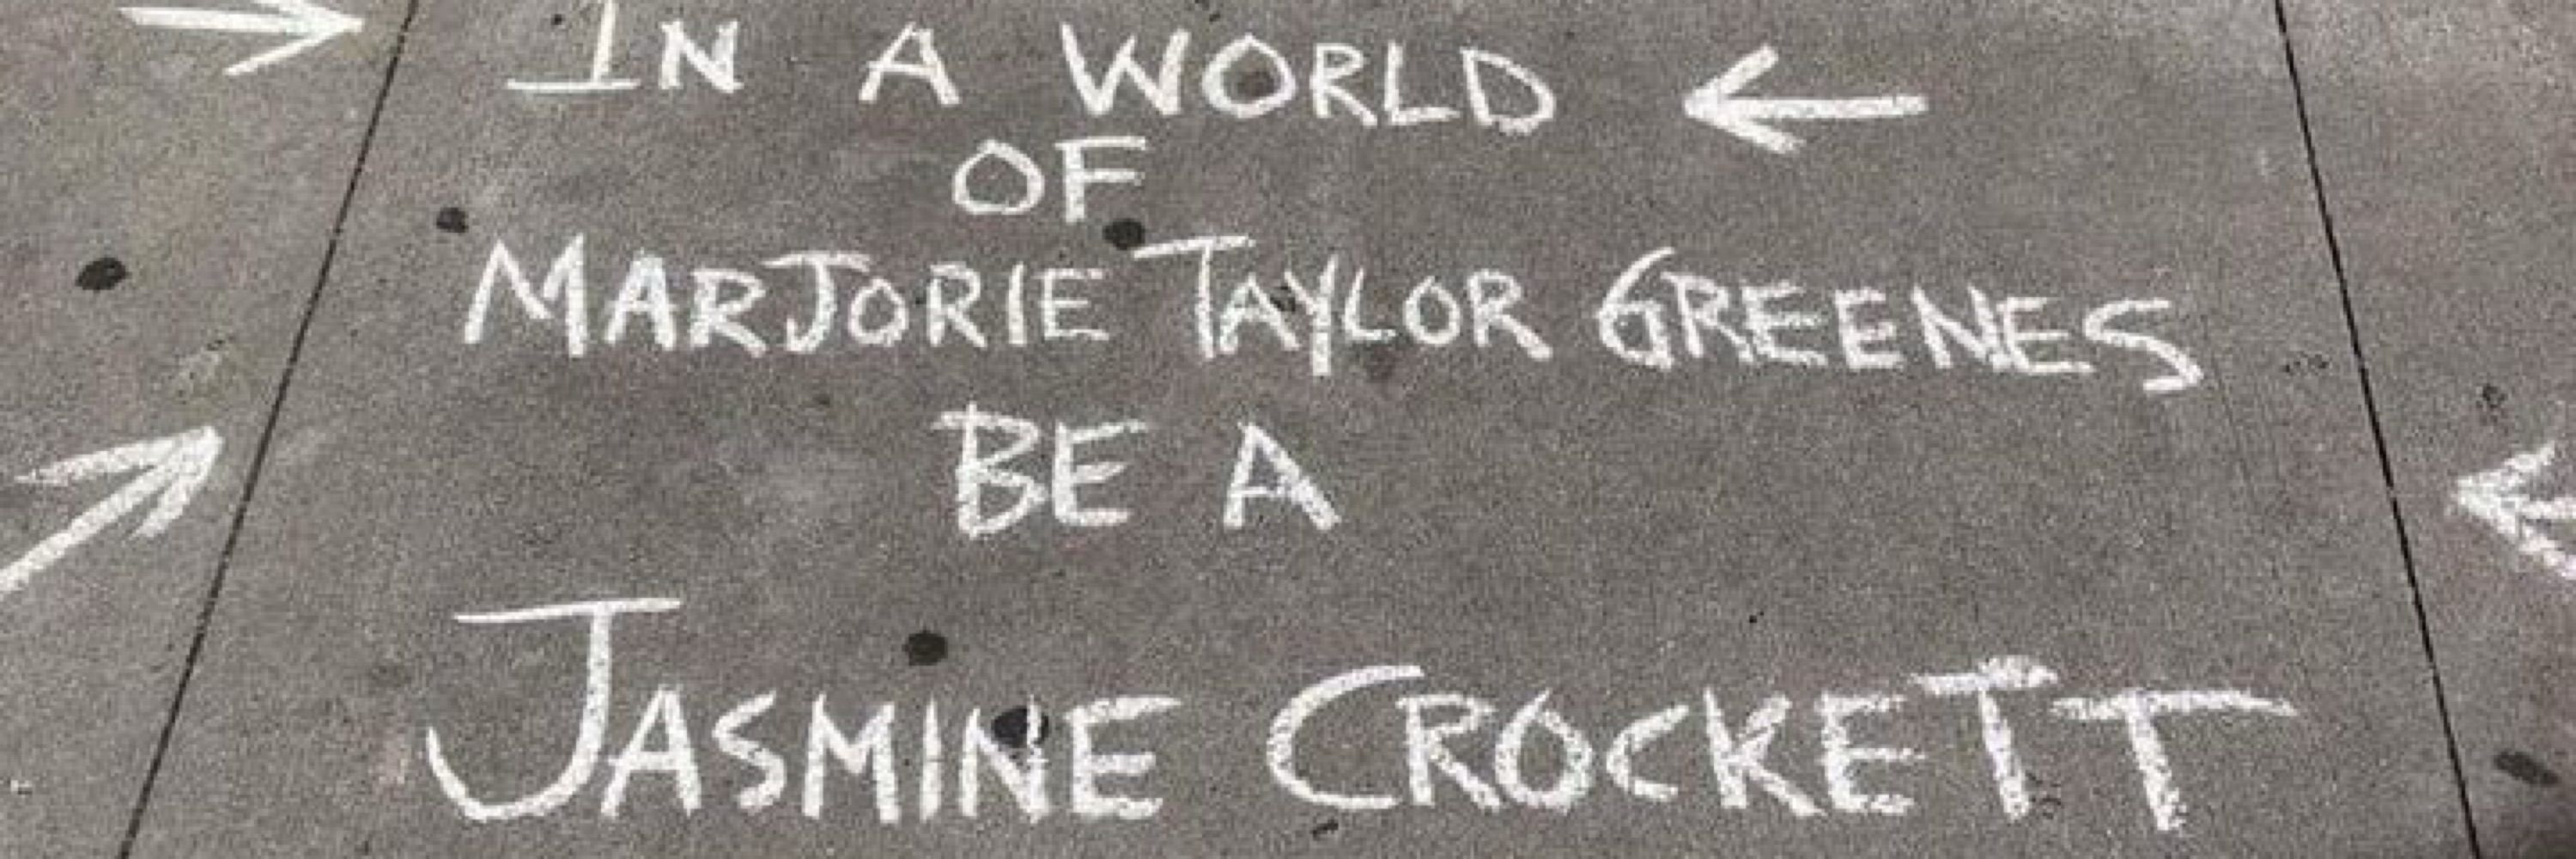 IN A WORLD
OF
MARJORIE TAYLOR GREENES
BE A
JASMINE CROCKETT